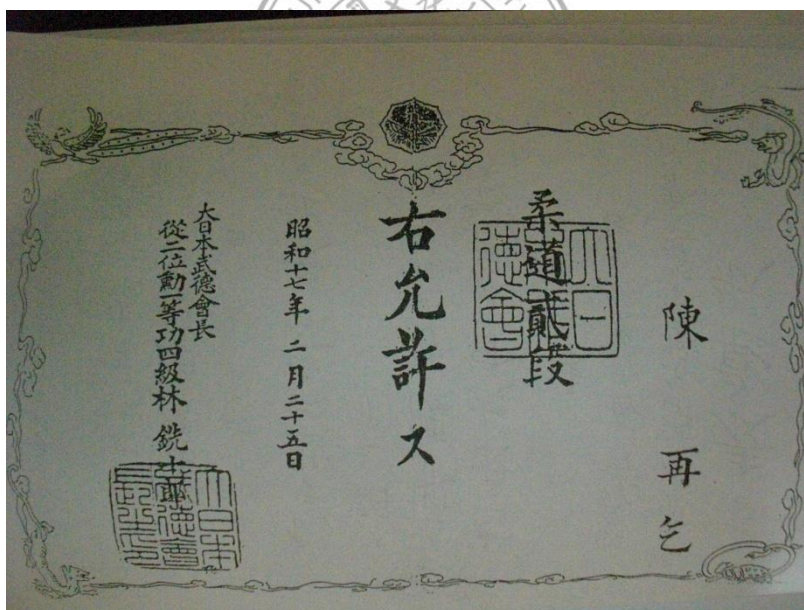 陳再乞
柔道貳段
右允許ス
昭和十七年二月二十五日
大日本武德會長
從二位勳一等功四級林銑十郎
大日本武德會